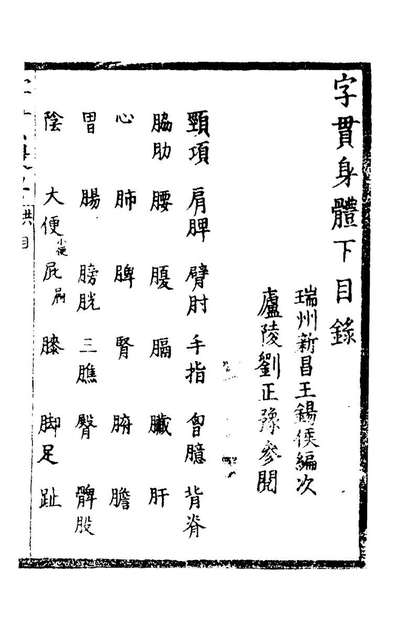 字貫身體下目錄
瑞州新昌王錫侯編次
廬陵劉正豫參閱
頸項 肩胛 臂肘 手指 胷臆 背脊
脇肋 腰 腹 膈 臟 肝
心 肺 脾 腎 腑 膽
胃 腸 膀胱 三膲 臀 髀股
陰 大便小便 屁屙 膝 脚足 趾
目